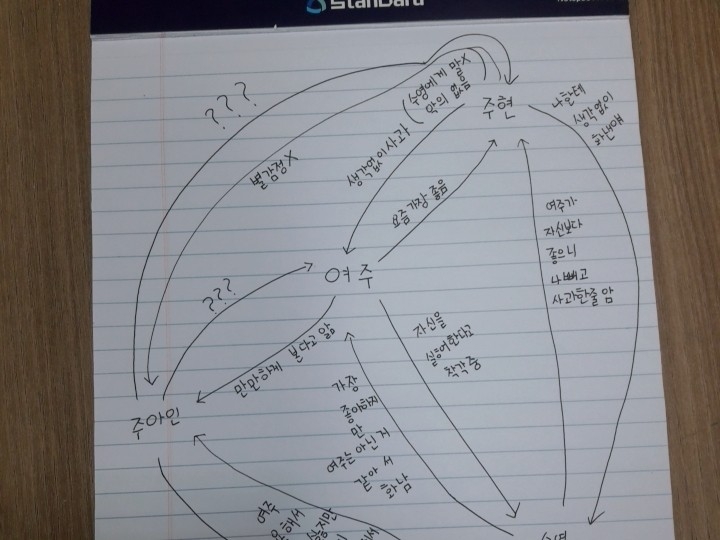 Standard
???
수영에게 말X
악의 없음
주현
나한테
생각없이
화낸애
생각없이 사과
별감정X
요즘 가장 좋음
여주가
자신보다
좋으니
나빼고
사과한줄 앎
여주
???
만만하게 본다고 앎
자신을
싫어한다고
착각중
가장
좋아하지
만
여주는 아닌 거
같아 서
화남
주아인
여주
싶지만